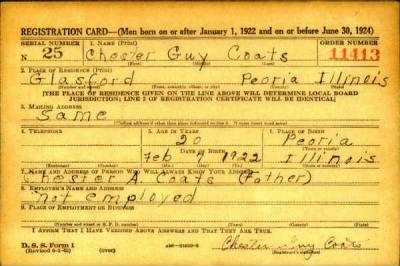 REGISTRATION CARD—(Men born on or after January 1, 1922 and on or before June 30, 1924)
SERIAL NUMBER 1. NAME (Print) ORDER NUMBER
N 25 Chester Guy Coats 11413
(First) (Middle) (Last)
2. PLACE OF RESIDENCE (Print)
Glasford Peoria Illinois
(Number and street) (Town, township, village, or city) (County) (State)
[THE PLACE OF RESIDENCE GIVEN ON THE LINE ABOVE WILL DETERMINE LOCAL BOARD
JURISDICTION; LINE 2 OF REGISTRATION CERTIFICATE WILL BE IDENTICAL]
3. MAILING ADDRESS
Same
(Mailing address if other than place indicated on line 2. If same insert word same)
4. TELEPHONE 5. AGE IN YEARS 6. PLACE OF BIRTH
20 Peoria
DATE OF BIRTH (Town or county)
Feb 7 1922 Illinois
(Exchange) (Number) (Mo.) (Day) (Yr.) (State or country)
7. NAME AND ADDRESS OF PERSON WHO WILL ALWAYS KNOW YOUR ADDRESS
Chester A. Coats (Father)
8. EMPLOYER'S NAME AND ADDRESS
not employed
9. PLACE OF EMPLOYMENT OR BUSINESS
(Number and street or R. F. D. number) (Town) (County) (State)
I AFFIRM THAT I HAVE VERIFIED ABOVE ANSWERS AND THAT THEY ARE TRUE.
D. S. S. Form 1
Chester Guy Coats
(Registrant's signature)